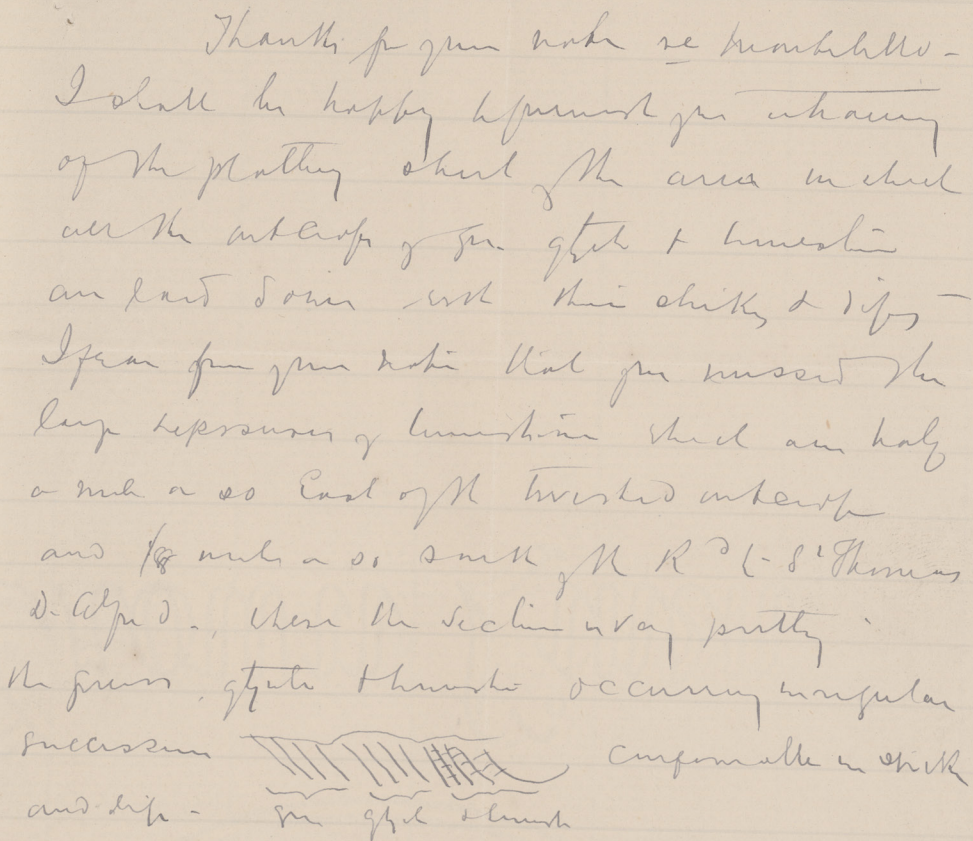 Thanks for your note re Montebello -
I shall be happy to furnish you a tracing
of the plotting sheet of the area in which
all the outcrops of gn. qtzte & limestone
are laid down with their strikes & dips -
I fear from your note that you missed the
large exposures of limestone which are half
a mile or so East of the twisted outcrop
and 1/8 mile or so south of the Rd to St Thomas
D. Alfred -, where the section is very pretty -
the gneiss, qtzte & limestone occurring in regular
succession conformable in strike
and dip - gn qtzte limest